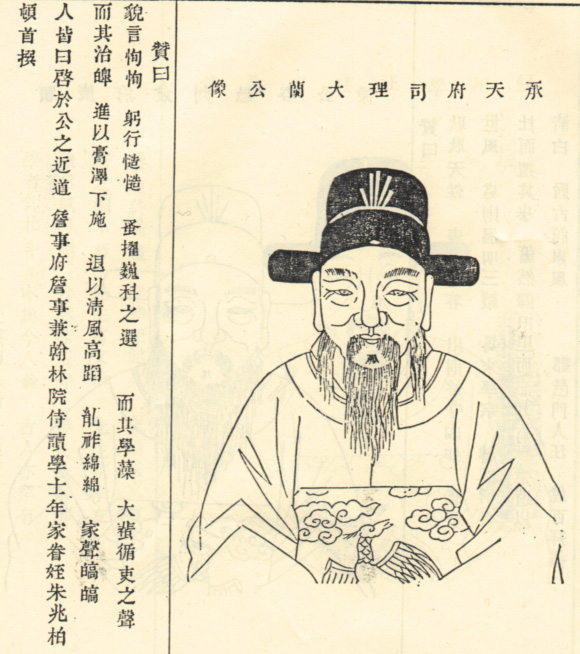 承天府司理大蘭公像
贊曰
貌言恂恂　躬行慥慥　蚤擢巍科之選　而其學藻　大蜚循吏之聲
而其治皞　進以膏澤下施　退以清風高蹈　胤祚綿綿　家聲皜皜
人皆曰啓於公之近道　詹事府詹事兼翰林院侍讀學士年家眷姪朱兆柏
頓首撰